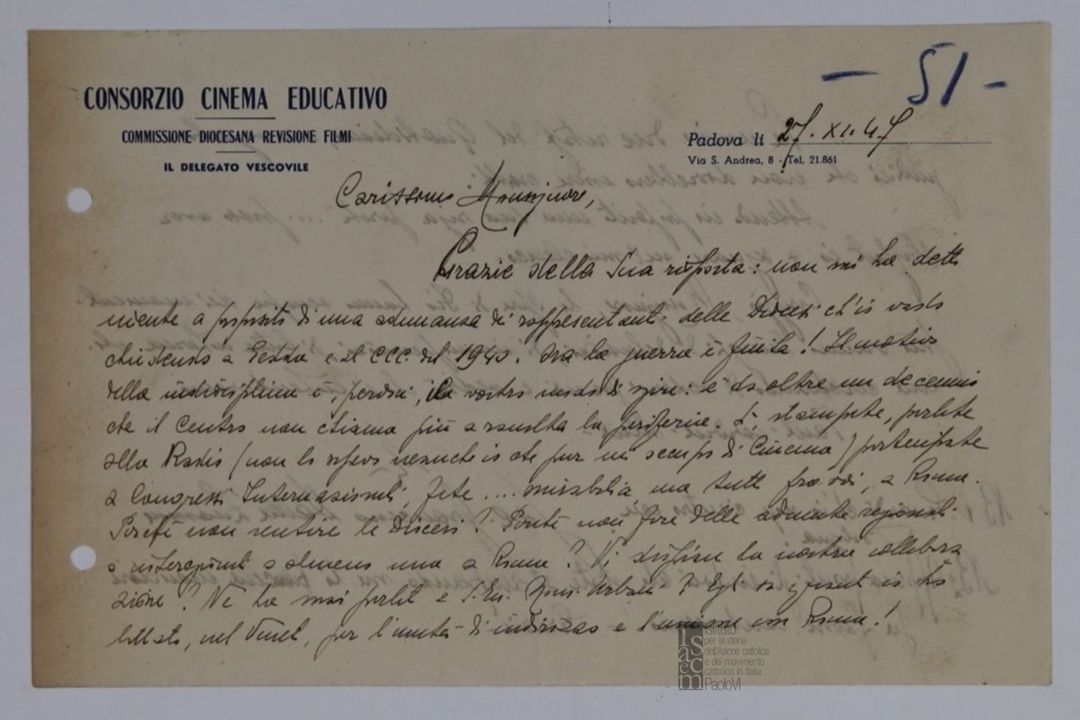 - 51 -
CONSORZIO CINEMA EDUCATIVO
COMMISSIONE DIOCESANA REVISIONE FILMI
IL DELEGATO VESCOVILE
Padova li 27. XI. 47
Via S. Andrea, 8 - Tel. 21.861
Carissimo Monsignore,
Grazie della Sua risposta: non mi ha detto
niente a proposito di una adunanza di rappresentanti delle Diocesi ch'io vado
chiedendo a e al CCC dal 1940. Ora la guerra è finita! Il motivo
della indisciplina è, perdoni, il vostro modo di agire: è da oltre un decennio
che il Centro non chiama più a raccolta la periferia. Sì, stampate, parlate
alla Radio (non lo sapevo neanche io che pur mi occupo di Cinema) partecipate
a Congressi Internazionali, fate .... mirabilia, ma tutto fra voi, a Roma.
Perché non sentire le Diocesi? Perché non fare delle adunate regionali
o interregionali o almeno una a Roma? Vi dispiace la nostra collabora
zione? Ne ha mai parlato a S. Ecc. Mons. Urbani? Egli sa quanto io ho
lottato, nel Veneto, per l'unità di indirizzo e l'unione con Roma!
Istituto
per la storia
dell'Azione cattolica
e del movimento
cattolico in Italia
PaoloVI